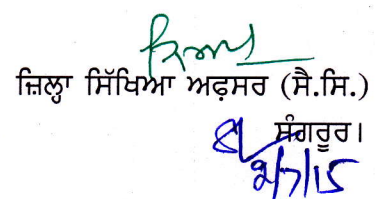 ਜ਼ਿਲ੍ਹਾ ਸਿੱਖਿਆ ਅਫ਼ਸਰ (ਸੈ.ਸਿ.)
ਸੰਗਰੂਰ।